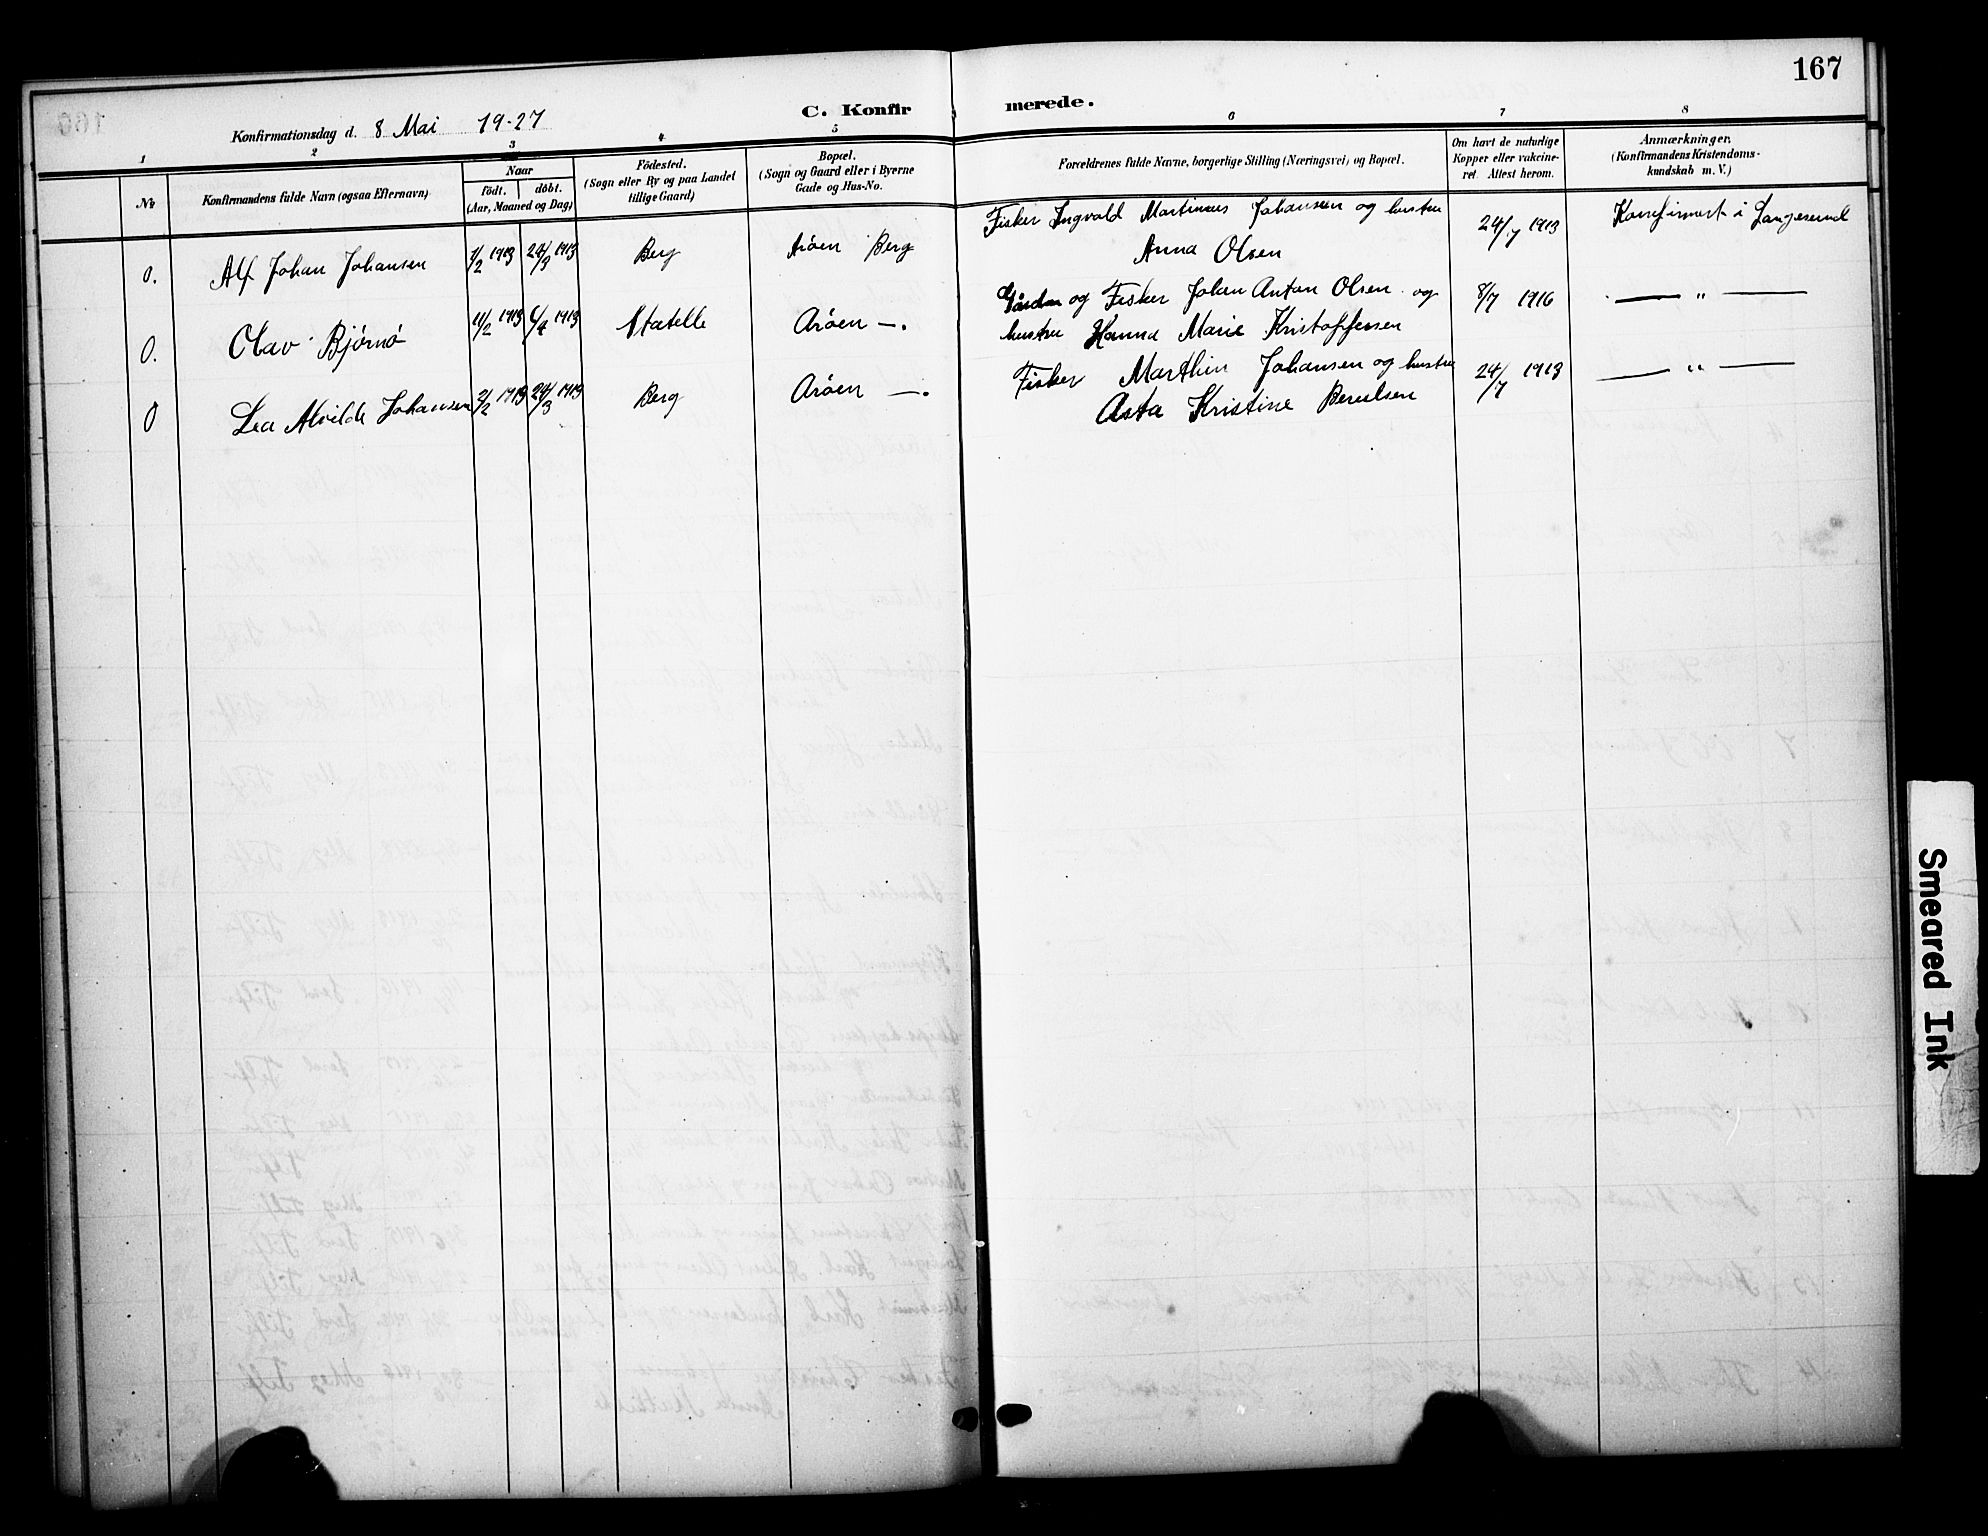 167
C. Konfirmerede.
Konfirmationsdag d. 8 Mai 19-27
1 2 3 4 5 6 7 8
No
Konfirmandens fulde Navn (ogsaa Efternavn)
Naar
födt. döbt.
(Aar, Maaned og Dag)
Födested.
(Sogn eller By og paa Landet
tillige Gaard)
Bopæl.
(Sogn og Gaard eller i Byerne
Gade og Hus-No.
Forældrenes fulde Navne, borgerlige Stilling (Næringsvei) og Bopæl.
Om havt de naturlige
Kopper eller vakcine-
ret. Attest herom.
Anmærkninger.
(Konfirmandens Kristendoms-
kundskab m. V.)
0. Alf Johan Johansen 1/2 1913 24/3 1913 Berg Arøen Berg Fisker Ingvald Martinius Johansen og hustru 24/7 1913 Konfirmert i Langesund
Anna Olsen
0. Olav Bjørnø 11/2 1913 6/4 1913 Statelle Arøen —. og Fisker Johan Anton Olsen og 8/7 1916 — " —
hustru Hanna Marie Kristoffersen
0 Lea Alvilde Johansen 2/2 1913 24/3 1913 Berg Arøen —. Fisker Marthin Johansen og hustru 24/7 1913 — " —
Asta Kristine
Smeared Ink